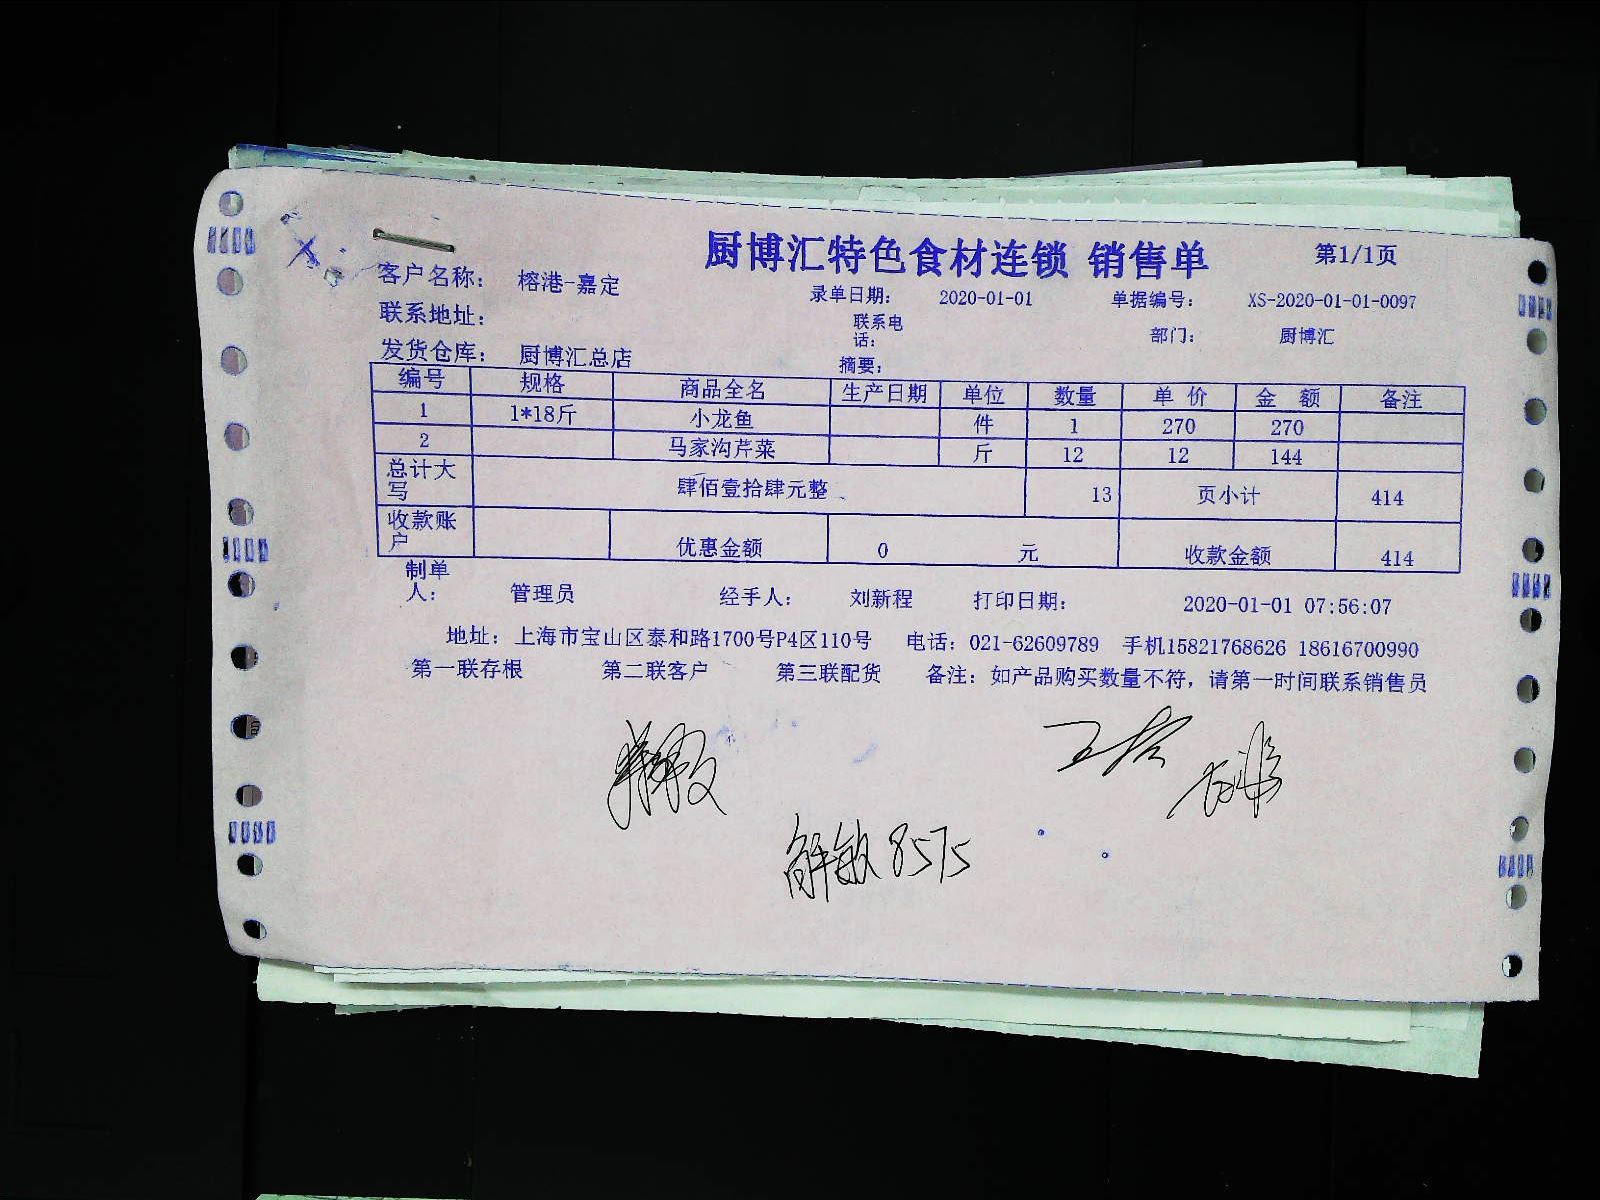 厨博汇特色食材连锁 销售单 第1/1页
客户名称： 榕港-嘉定 录单日期： 2020-01-01 单据编号： XS-2020-01-01-0097
联系地址： 联系电话： 部门： 厨博汇
发货仓库： 厨博汇总店 摘要：
编号 规格 商品全名 生产日期 单位 数量 单 价 金 额 备注
1 1*18斤 小龙鱼 件 1 270 270
2 马家沟芹菜 斤 12 12 144
总计大写 肆佰壹拾肆元整 13 页小计 414
收款账户 优惠金额 0 元 收款金额 414
制单人： 管理员 经手人： 刘新程 打印日期： 2020-01-01 07:56:07
地址：上海市宝山区泰和路1700号P4区110号 电话：021-62609789 手机15821768626 18616700990
第一联存根 第二联客户 第三联配货 备注：如产品购买数量不符，请第一时间联系销售员
解敏 8575